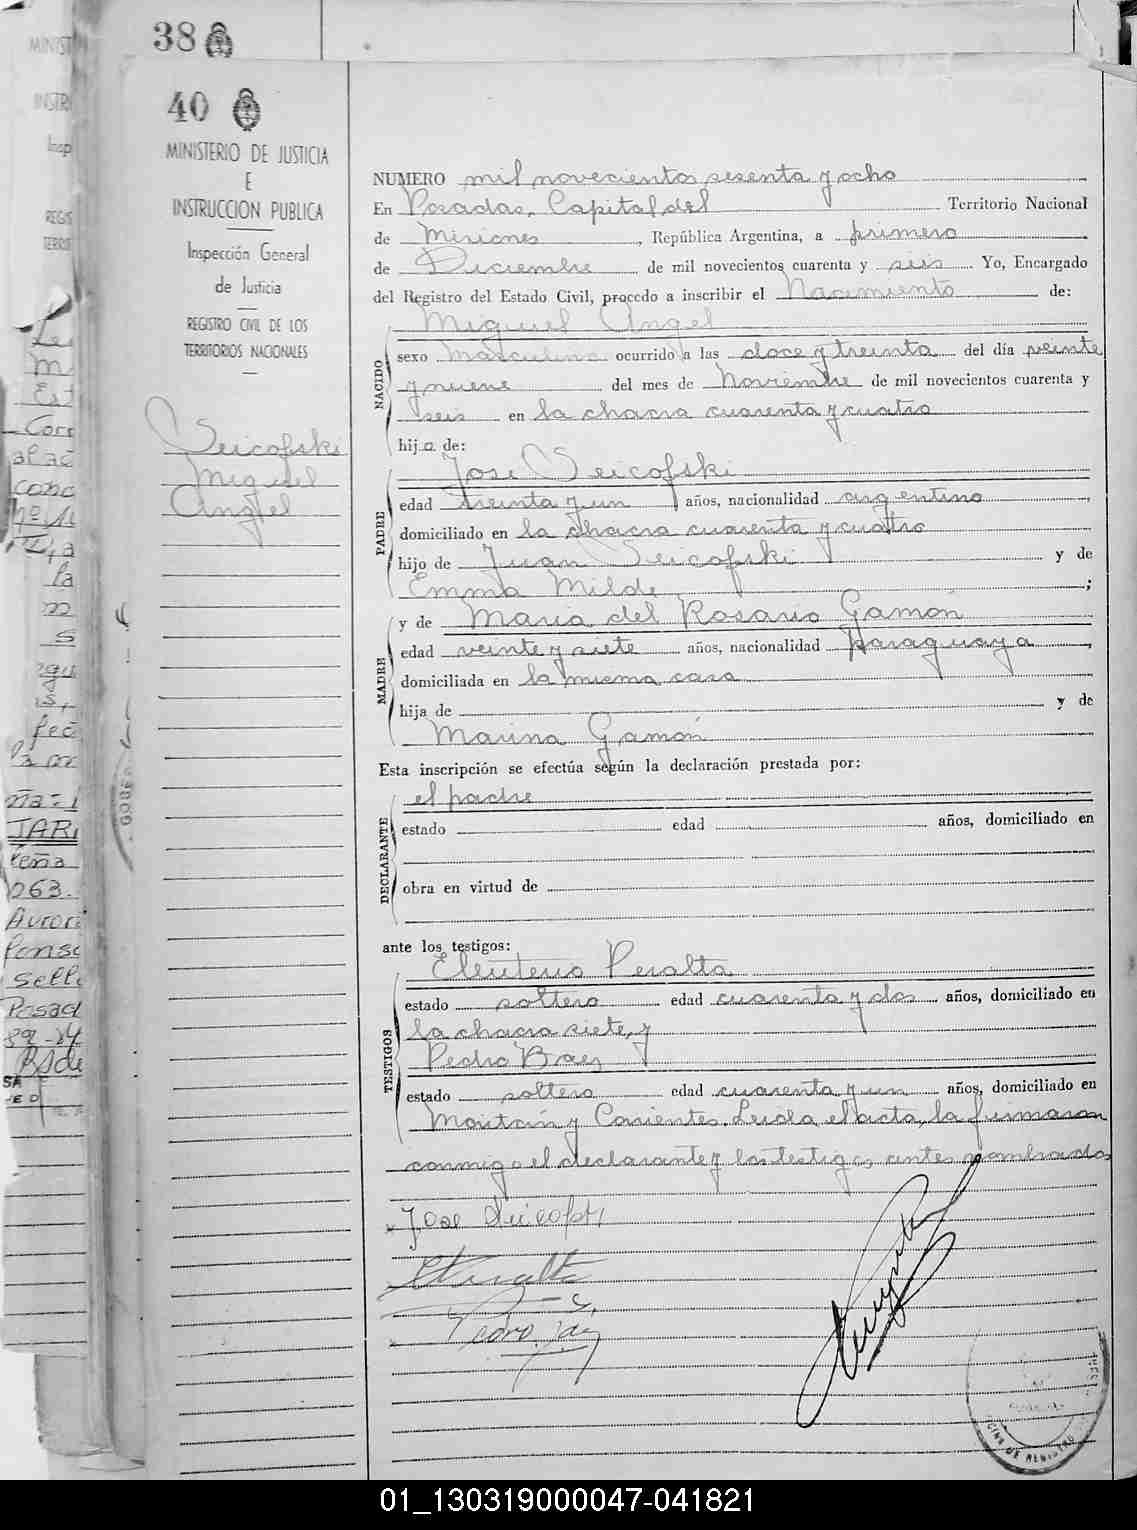 38
40
MINISTERIO DE JUSTICIA
E
INSTRUCCION PUBLICA
Inspección General
de Justicia
REGISTRO CIVIL DE LOS
TERRITORIOS NACIONALES
Seicofski
Miguel
Angel
NUMERO mil novecientos sesenta y ocho
En Posadas, Capital del Territorio Nacional
de Misiones, República Argentina, a primero
de Diciembre de mil novecientos cuarenta y seis Yo, Encargado
del Registro del Estado Civil, procedo a inscribir el Nacimiento de:
NACIDO
Miguel Angel
sexo Masculino ocurrido a las doce y treinta del día veinte
y nueve del mes de Noviembre de mil novecientos cuarenta y
seis en la chacra cuarenta y cuatro
hijo de:
PADRE
José Seicofski
edad treinta y un años, nacionalidad argentino,
domiciliado en la chacra cuarenta y cuatro
hijo de Juan Seicofski y de
Emma Milde;
MADRE
y de María del Rosario Gamón
edad veinte y siete años, nacionalidad paraguaya,
domiciliada en la misma casa
hija de y de
Marina Gamón
Esta inscripción se efectúa según la declaración prestada por:
DECLARANTE
el padre
estado edad años, domiciliado en
obra en virtud de
ante los testigos:
TESTIGOS
Eleuterio Peralta
estado soltero edad cuarenta y dos años, domiciliado en
la chacra siete, y
Pedro Baez
estado soltero edad cuarenta y un años, domiciliado en
Maitén y Corrientes. Leída el acta, la firmaron
conmigo el declarante y los testigos antes nombrados
José Seicofski
EPeralta
Pedro Baez
01_130319000047-041821